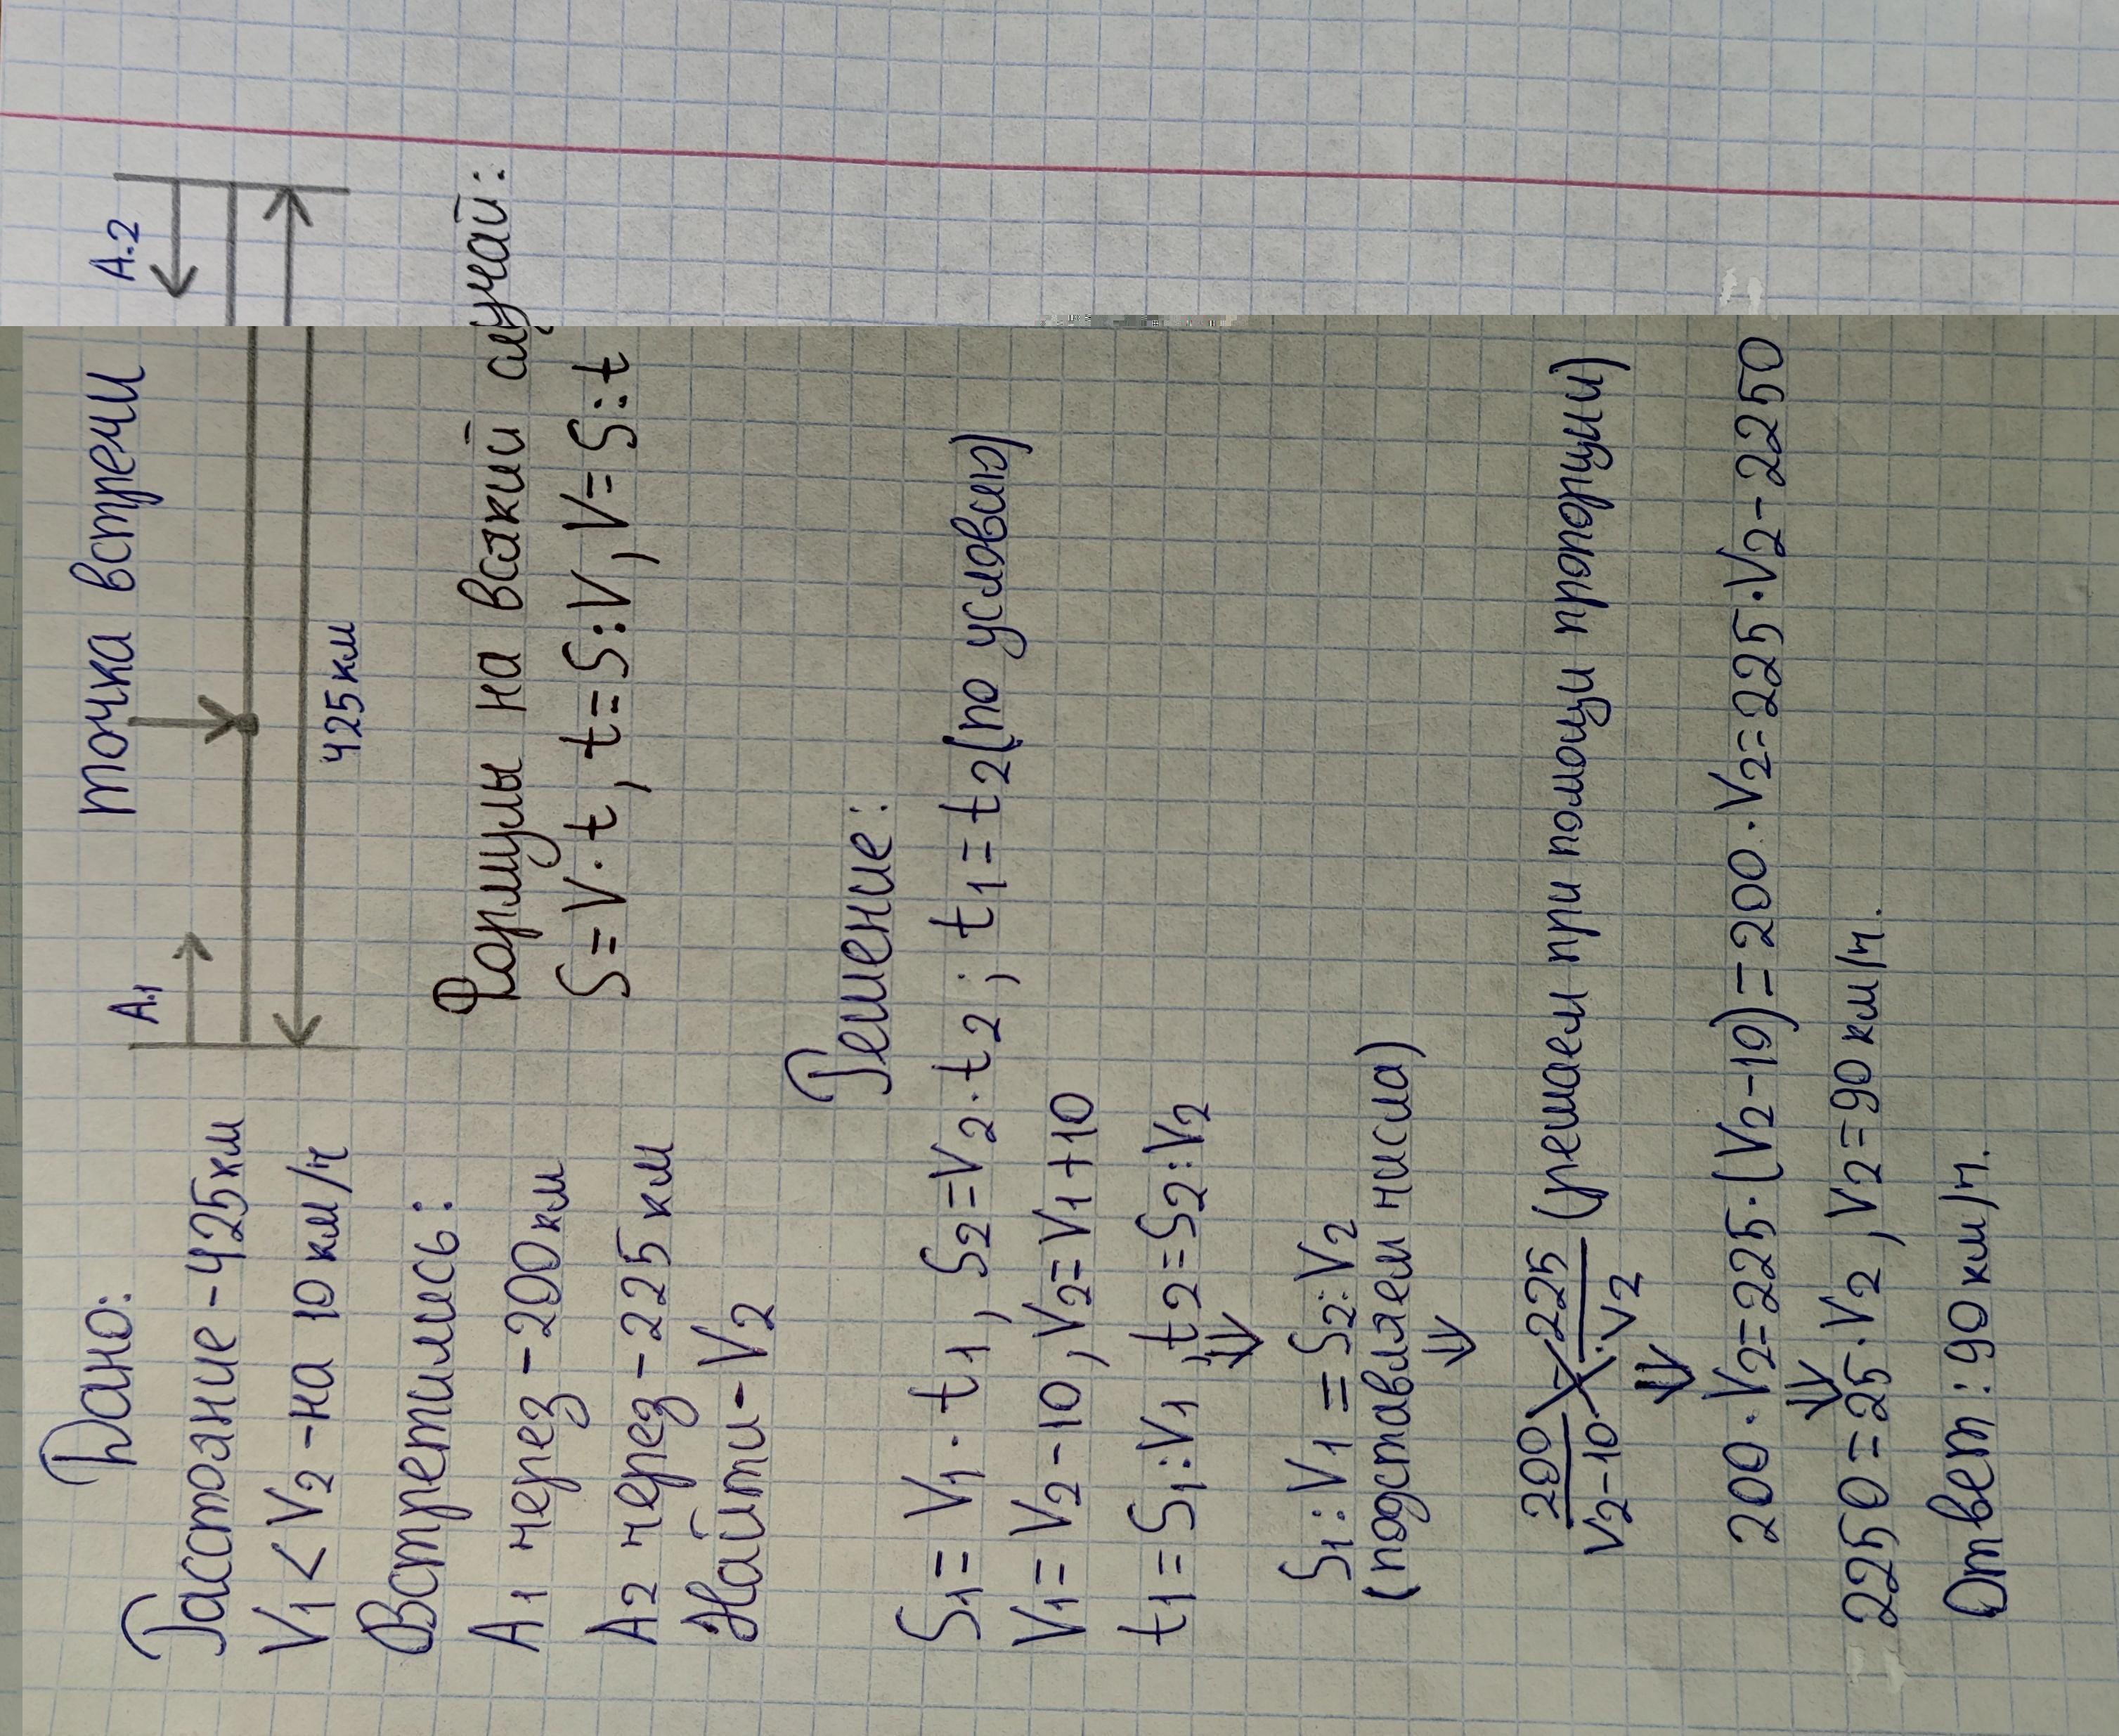 Дано:
Расстояние-425км
V1 < V2 -на 10 км/ч
Встретились:
А1 через-200км
А2 через-225 км
Найти-V2
точка встречи
А.1
А.2
425 км
Формулы на всякий случай:
S=V·t, t=S:V, V=S:t
Решение:
S1=V1·t1, S2=V2·t2; t1=t2(по условию)
V1=V2-10, V2=V1+10
t1=S1:V1, t2=S2:V2
⇓
S1:V1=S2:V2
(подставляем числа)
⇓
200 = 225 (решаем при помощи пропорции)
V2-10 V2
⇓
200·V2=225·(V2-10)=200·V2=225·V2-2250
⇓
2250=25·V2, V2=90 км/ч.
Ответ: 90 км/ч.